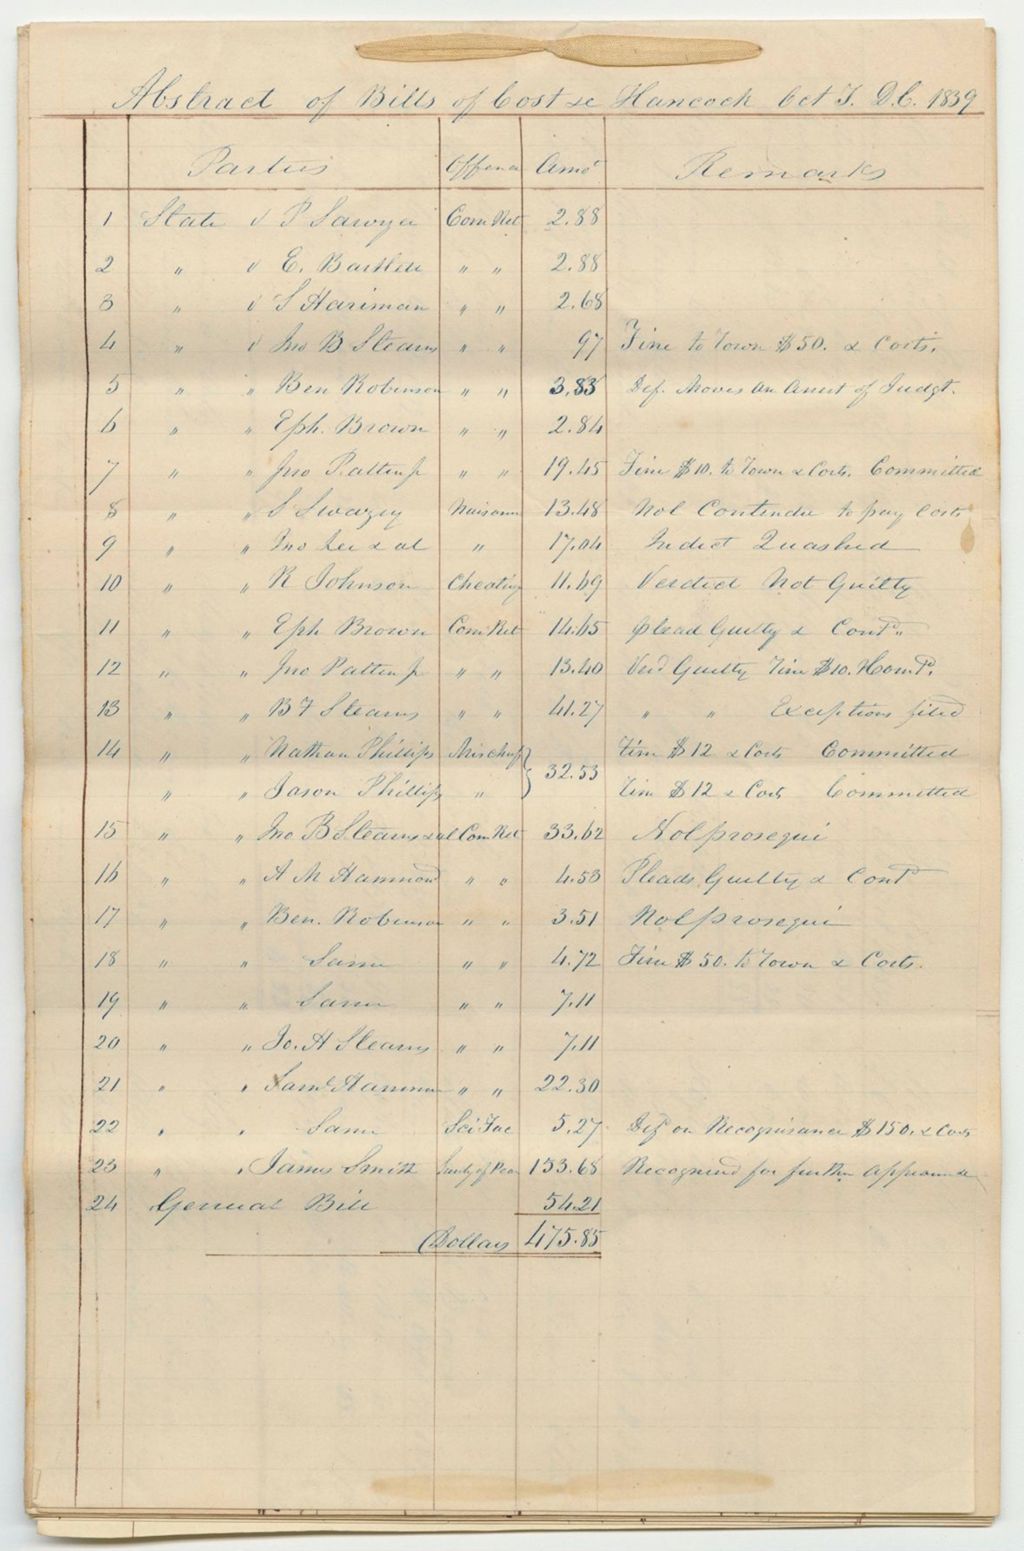 Abstract of Bills of Cost &c Hancock Oct T. D.C. 1839
Parties Offence Amot Remarks
1 State v P Sawyer Com Ret 2.88
2 " v E. Bartlett " " 2.88
3 " v S Hariman " " 2.68
4 " v Jno B Stearns " " 97 Fine to Town $50. & Costs.
5 " " Ben Robinson " " 3.83 Def. Moves an Arrest of Judgt.
6 " " Eph. Brown " " 2.84
7 " " Jno Patten Jr " " 19.45 Fine $10. to Town & Costs. Committed
8 " " S Swazey Nuisance 13.48 Nol Contendre to pay Costs
9 " " Jno Lee & al " 17.04 Indict Quashed
10 " " R Johnson Cheating 11.69 Verdict Not Guilty
11 " " Eph Brown Com Ret 14.45 plead Guilty & Contd "
12 " " Jno Patten Jr " " 13.40 Verd Guilty Fine $10. Comtd.
13 " " B F Stearns " " 41.27 " " Exceptions filed
14 " " Nathan Phillips Mischief } 32.53 Fine $12 & Costs Committed
" " Jason Phillips " Fine $12 & Costs Committed
15 " " Jno B Stearns & al Com Ret 33.62 Nol prosequi
16 " " A M Hammond " " 4.53 Pleads Guilty & Contd
17 " " Ben. Robinson " " 3.51 Nol prosequi
18 " " Same " " 4.72 Fine $50. to Town & Costs.
19 " " Same " " 7.11
20 " " Jo. H Stearns " " 7.11
21 " " Saml Hammon " " 22.30
22 " " Same Sci Fac 5.27 Deft on Recognisance $150. & Costs
23 " " James Smith Surty of Pea 153.68 Recognised for further appearance
24 General Bill 54.21
Dollars 475.85